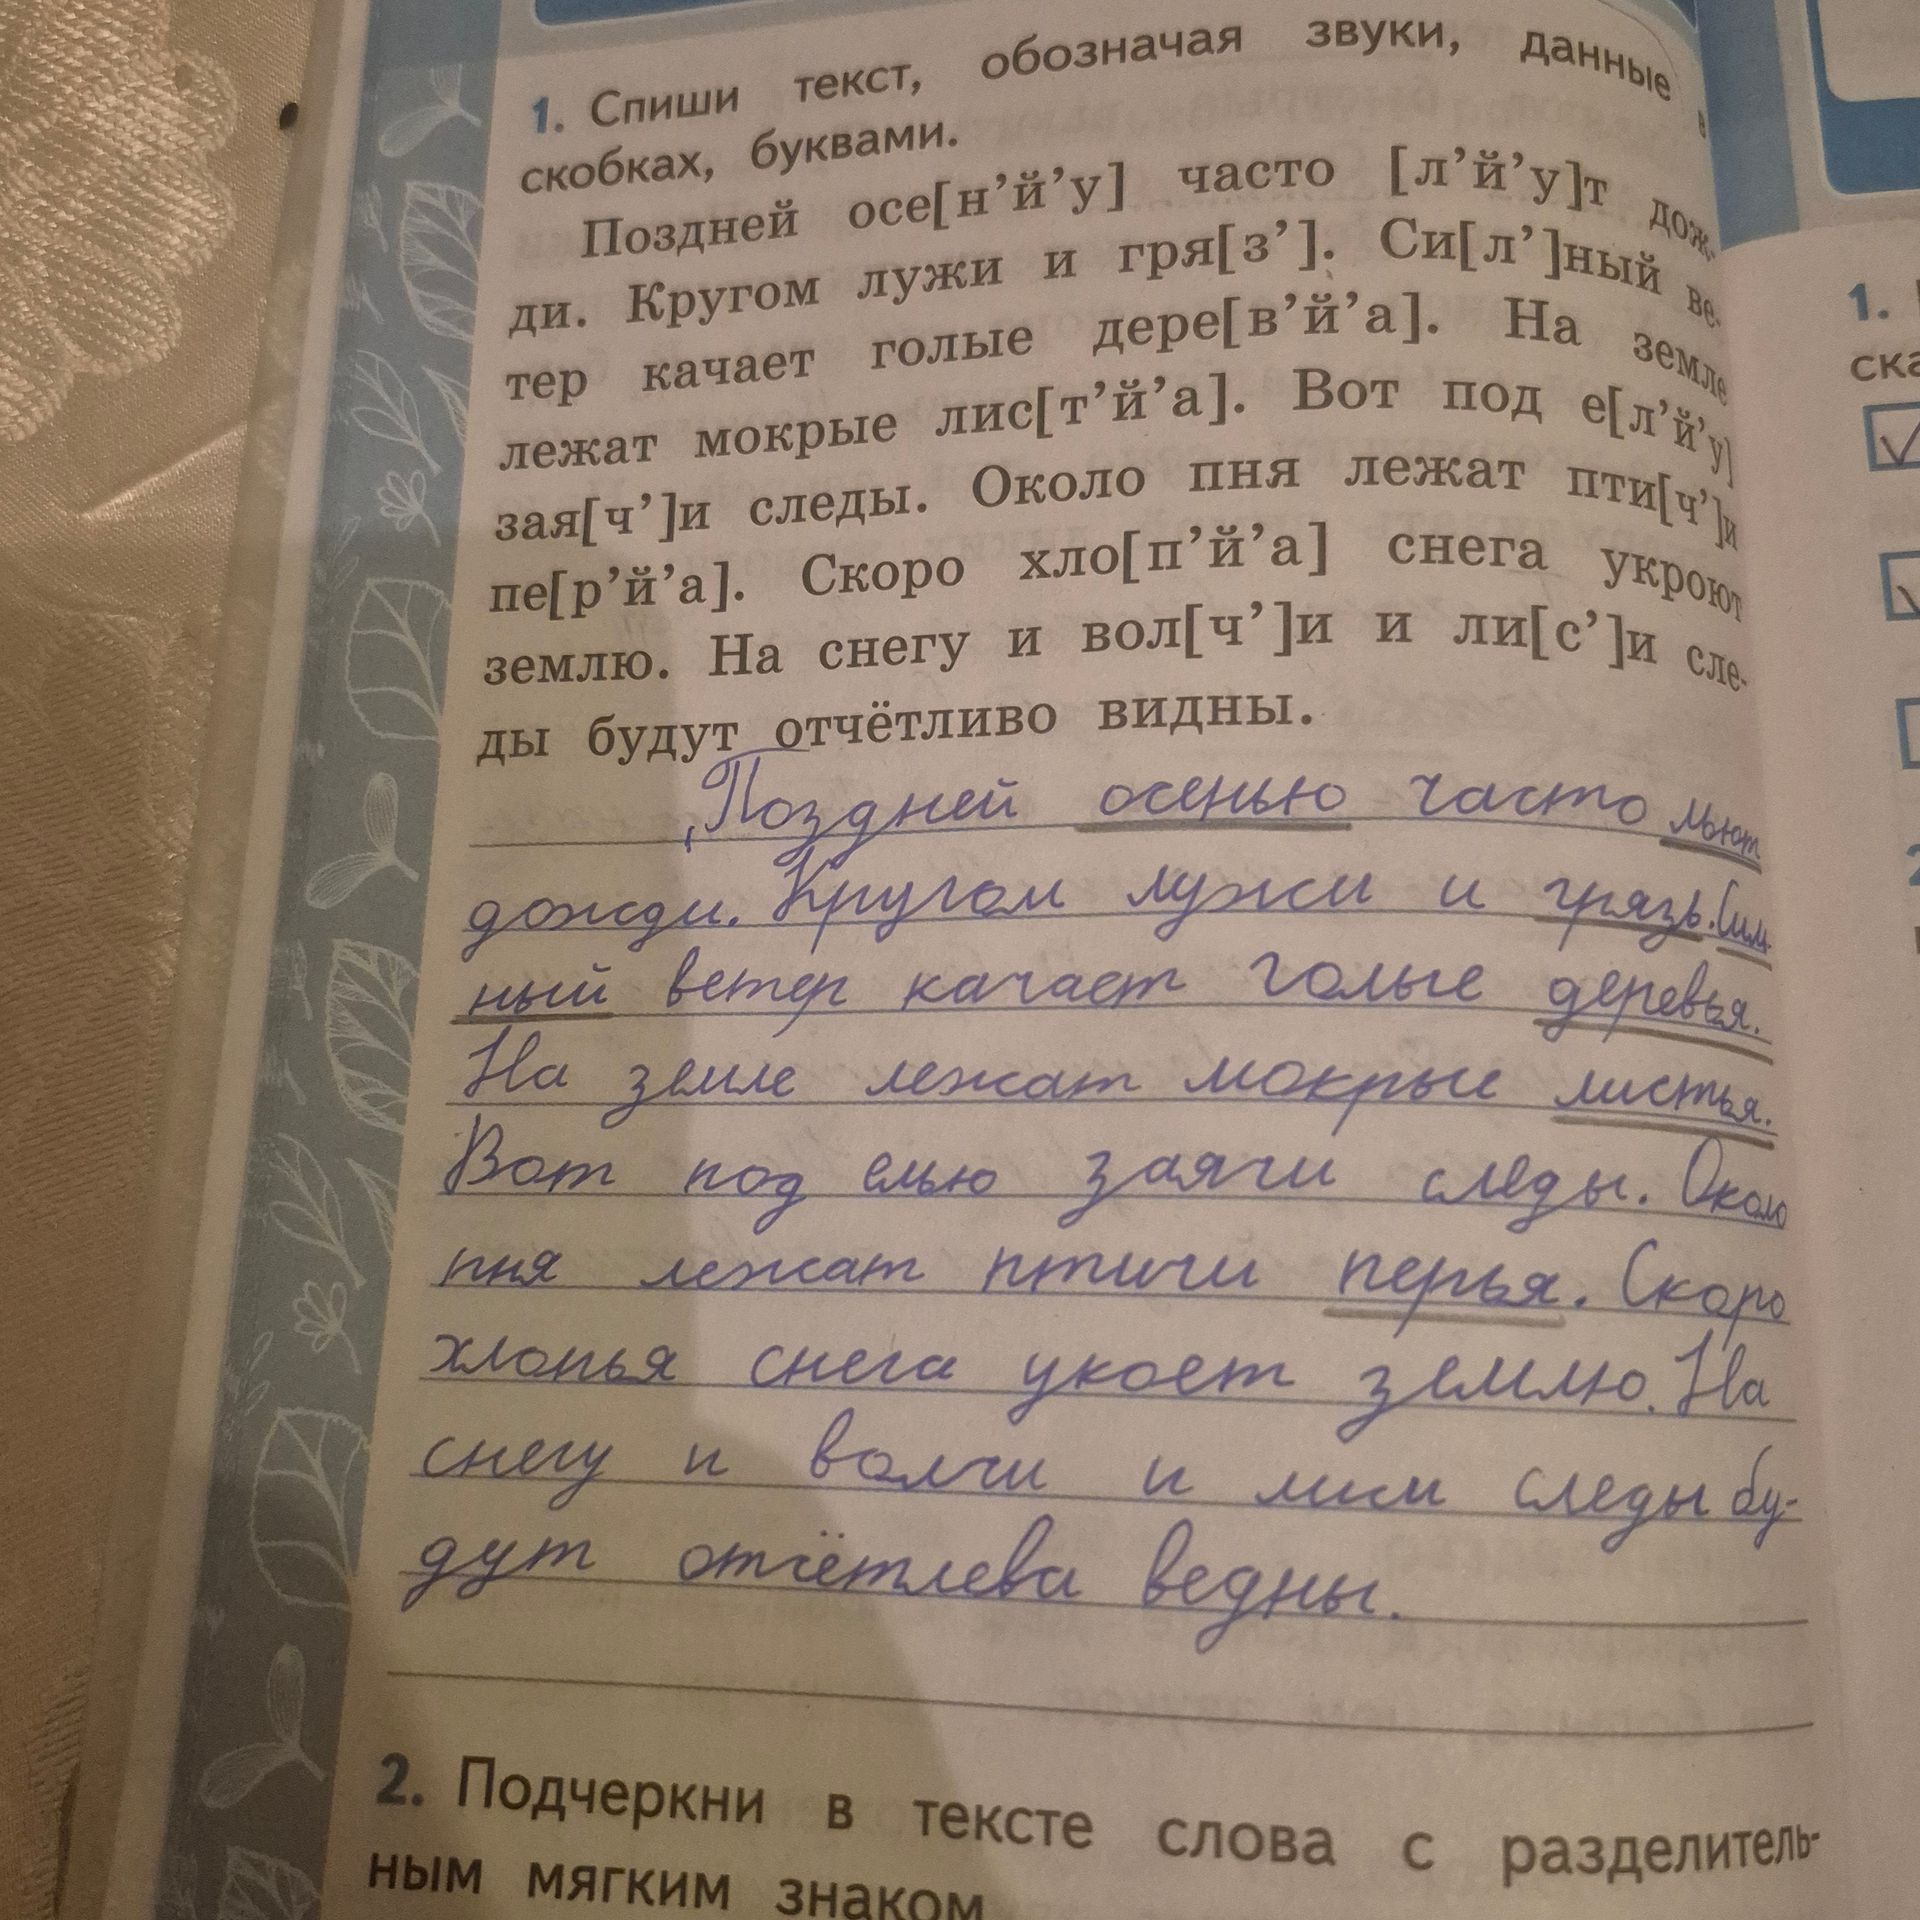 1. Спиши текст, обозначая звуки, данные в
скобках, буквами.
Поздней осе[н’й’у] часто [л’й’у]т дож-
ди. Кругом лужи и гря[з’]. Си[л’]ный ве-
тер качает голые дере[в’й’а]. На земле
лежат мокрые лис[т’й’а]. Вот под е[л’й’у]
зая[ч’]и следы. Около пня лежат пти[ч’]и
пе[р’й’а]. Скоро хло[п’й’а] снега укроют
землю. На снегу и вол[ч’]и и ли[с’]и сле-
ды будут отчётливо видны.
Поздней осенью часто льют
дожди. Кругом лужи и грязь. Силь-
ный ветер качает голые деревья.
На земле лежат мокрые листья.
Вот под елью заячи следы. Около
пня лежат птичи перья. Скоро
хлопья снега укоет землю. На
снегу и волчи и лиси следы бу-
дут отчётлева ведны.
2. Подчеркни в тексте слова с разделитель-
ным мягким знаком
1.
ска
2